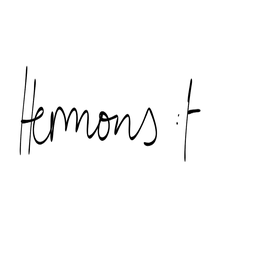 Hermons :t